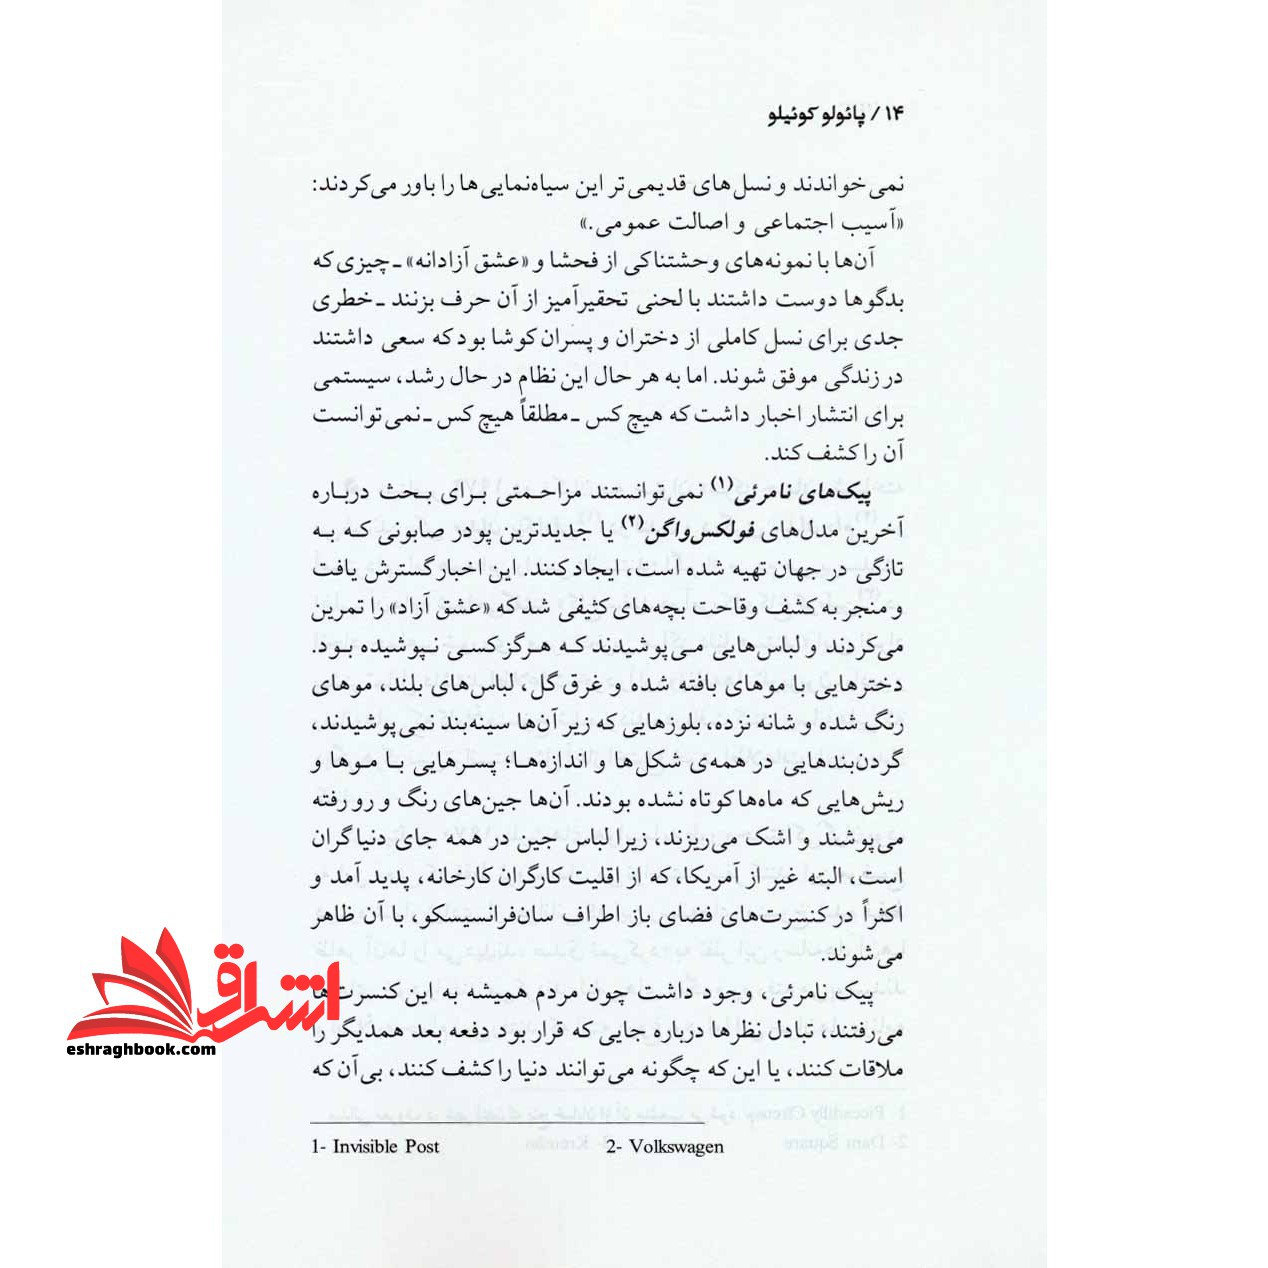 ۱۴ / پائولو کوئیلو
نمی‌خواندند و نسل‌های قدیمی‌تر این سیاه‌نمایی‌ها را باور می‌کردند:
«آسیب اجتماعی و اصالت عمومی.»
آن‌ها با نمونه‌های وحشتناکی از فحشا و «عشق آزادانه» ـ چیزی که
بدگوها دوست داشتند با لحنی تحقیرآمیز از آن حرف بزنند ـ خطری
جدی برای نسل کاملی از دختران و پسران کوشا بود که سعی داشتند
در زندگی موفق شوند. اما به هر حال این نظام در حال رشد، سیستمی
برای انتشار اخبار داشت که هیچ کس ـ مطلقاً هیچ کس ـ نمی‌توانست
آن را کشف کند.
پیک‌های نامرئی(۱) نمی‌توانستند مزاحمتی برای بحث درباره
آخرین مدل‌های فولکس‌واگن(۲) یا جدیدترین پودر صابونی که به
تازگی در جهان تهیه شده است، ایجاد کنند. این اخبار گسترش یافت
و منجر به کشف وقاحت بچه‌های کثیفی شد که «عشق آزاد» را تمرین
می‌کردند و لباس‌هایی می‌پوشیدند که هرگز کسی نپوشیده بود.
دخترهایی با موهای بافته شده و غرق گل، لباس‌های بلند، موهای
رنگ شده و شانه نزده، بلوزهایی که زیر آن‌ها سینه‌بند نمی‌پوشیدند،
گردن‌بندهایی در همه‌ی شکل‌ها و اندازه‌ها؛ پسرهایی با موها و
ریش‌هایی که ماه‌ها کوتاه نشده بودند. آن‌ها جین‌های رنگ و رو رفته
می‌پوشند و اشک می‌ریزند، زیرا لباس جین در همه جای دنیا گران
است، البته غیر از آمریکا، که از اقلیت کارگران کارخانه، پدید آمد و
اکثراً در کنسرت‌های فضای باز اطراف سان‌فرانسیسکو، با آن ظاهر
می‌شوند.
پیک نامرئی، وجود داشت چون مردم همیشه به این کنسرت‌ها
می‌رفتند، تبادل نظرها درباره جایی که قرار بود دفعه بعد همدیگر را
ملاقات کنند، یا این که چگونه می‌توانند دنیا را کشف کنند، بی‌آن که
1- Invisible Post 2- Volkswagen
اشراق
eshraghbook.com